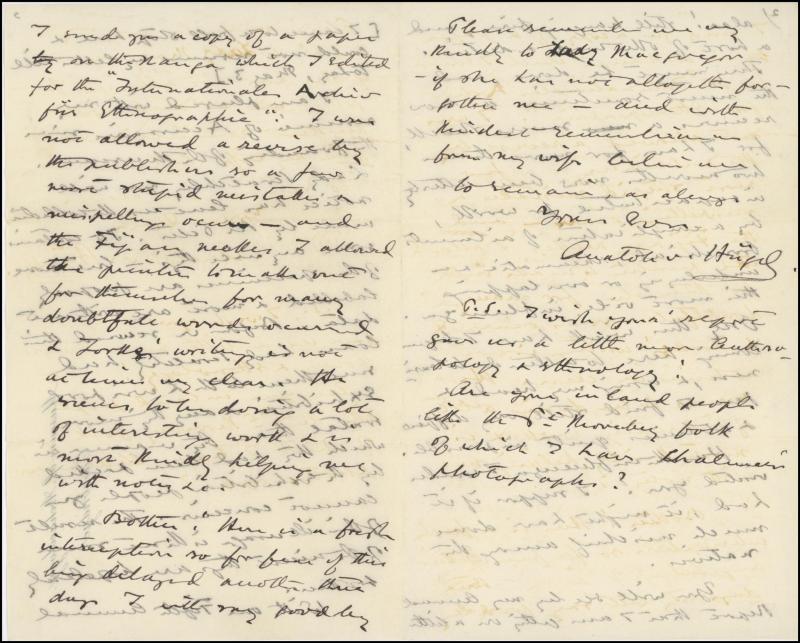 I send you a copy of a paper
by on the Nanga which I edited
for the "Internationales Archiv
für Ethnographie": I was
not allowed a revise by
the publishers so a few
most stupid mistakes &
mispellings occur — and
the Fijian I allowed
the printer to make out
for themselves for many
doubtful words occurred
& writing is not
at times very clear. He
seems to be doing a lot
of interesting work & is
most kindly helping me
with notes &c.
Bother! Here is a fresh
interruption so for fear of this
being delayed another three
days I will say good bye
Please remember me very
kindly to Lady Macgregor
— if she has not altogether for-
gotten me — and with
kindest remembrances
from my wife believe me
to remain as always
Yours Ever
Anatole v. Hügel
P.S. I wish your report
gave us a little more Anthro-
pology & ethnology!
Are your inland people
like the Pt Moresby folk
of which I have Chalmers'
photographs?